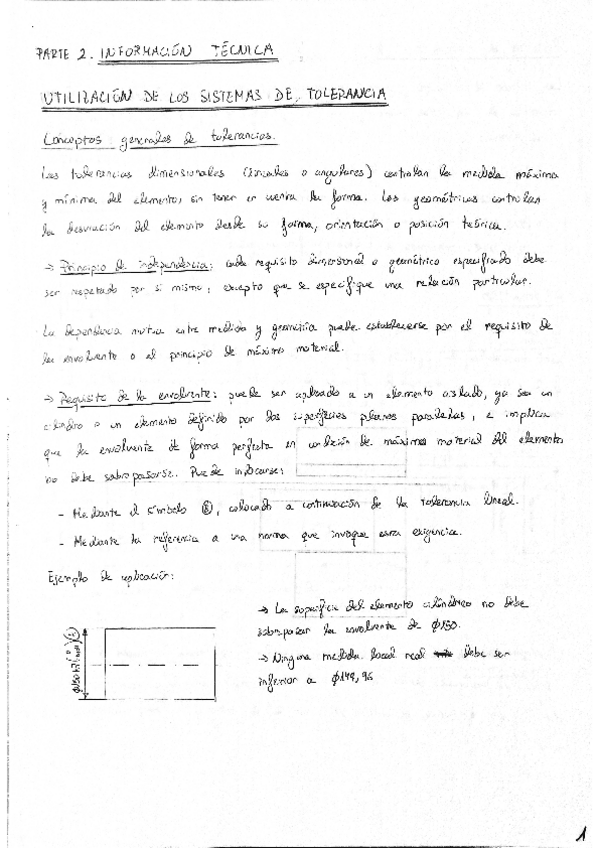 PARTE 2. INFORMACIÓN TÉCNICA
UTILIZACIÓN DE LOS SISTEMAS DE TOLERANCIA
Conceptos generales de tolerancias.
Las tolerancias dimensionales (lineales o angulares) controlan la medida máxima
y mínima del elemento, sin tener en cuenta la forma. Las geométricas controlan
la desviación del elemento desde su forma, orientación o posición teórica.
→ Principio de independencia: cada requisito dimensional o geométrico especificado debe
ser respetado por si mismo, excepto que se especifique una relación particular.
La dependencia mutua entre medida y geometría puede establecerse por el requisito de
la envolvente o al principio de máximo material.
→ Requisito de la envolvente: puede ser aplicado a un elemento aislado, ya sea un
cilindro o un elemento definido por dos superficies planas paralelas, e implica
que la envolvente de forma perfecta en condición de máximo material del elemento
no debe sobrepasarse. Puede indicarse:
- Mediante el símbolo Ⓔ, colocado a continuación de la tolerancia lineal.
- Mediante la referencia a una norma que invoque esta exigencia.
Ejemplo de aplicación:
→ La superficie del elemento cilíndrico no debe
sobrepasar la envolvente de φ150.
→ Ninguna medida local real debe ser
inferior a φ149,96
φ150 h7 Ⓔ
1